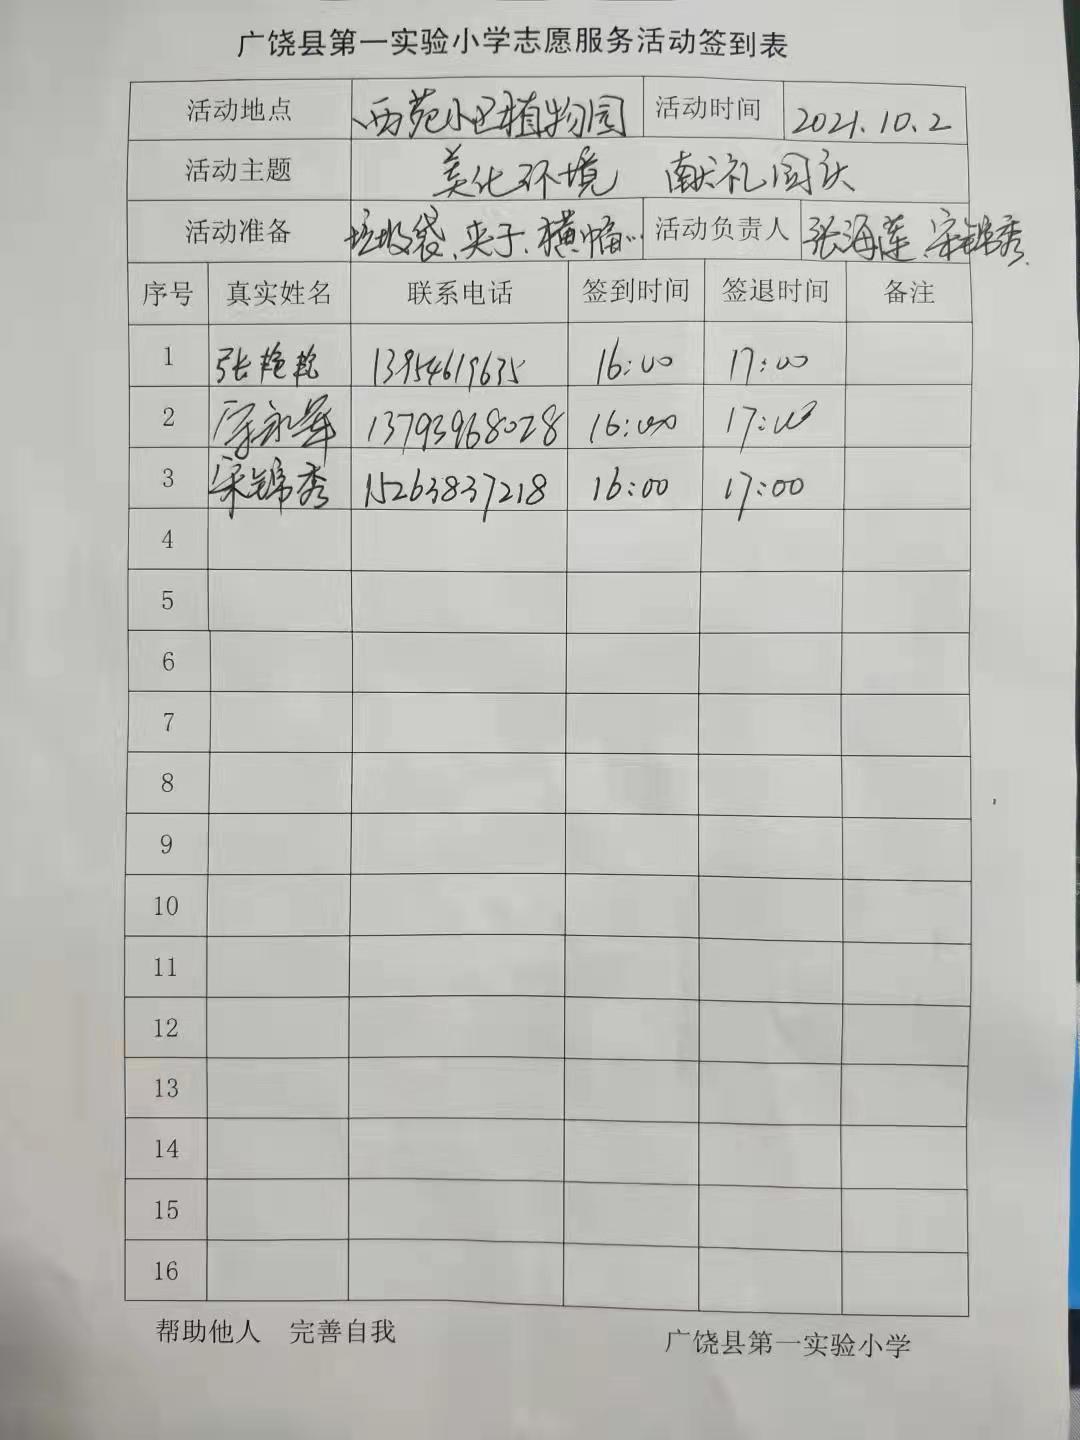 广饶县第一实验小学志愿服务活动签到表
活动地点 西苑小区植物园 活动时间 2021.10.2
活动主题 美化环境 献礼国庆
活动准备 垃圾袋、夹子、横幅… 活动负责人 张海莲、宋锦秀
序号 真实姓名 联系电话 签到时间 签退时间 备注
1 张艳艳 13954619635 16:00 17:00
2 永军 13793968028 16:00 17:00
3 宋锦秀 15263837218 16:00 17:00
4
5
6
7
8
9
10
11
12
13
14
15
16
帮助他人 完善自我 广饶县第一实验小学